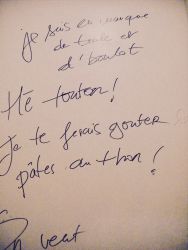 je suis en manque
de toute et
d'boulot
Hé tonton!
Je te ferais gouter
pâtes au thon!
On veut